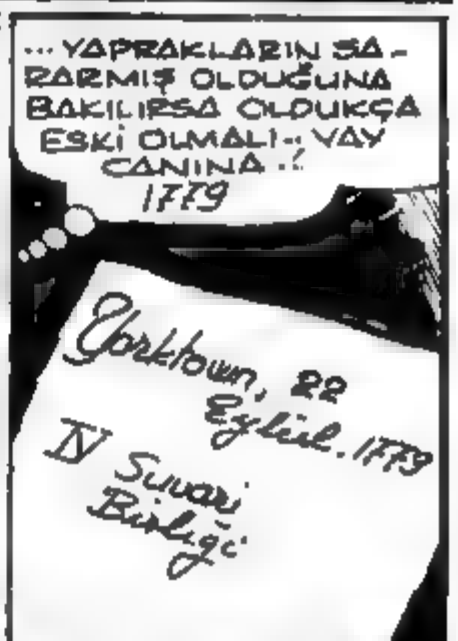 ... YAPRAKLARIN SA-
RARMIŞ OLDUĞUNA
BAKILIRSA OLDUKÇA
ESKİ OLMALI.. VAY
CANINA..!
1779
Yorktown, 22
Eylül. 1779
IV Suvari
Birliği